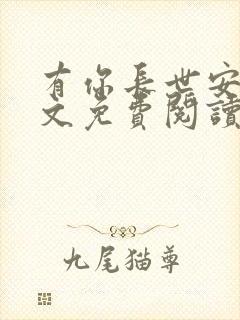 有你長世安
文免費閱讀
九尾猫尊